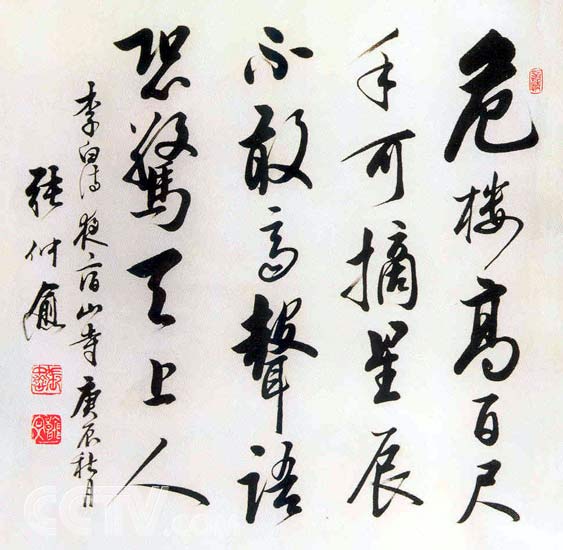 危楼高百尺
手可摘星辰
不敢高聲语
恐驚天上人
李白诗夜宿山寺庚辰秋月
張仲愈
CCTV.com